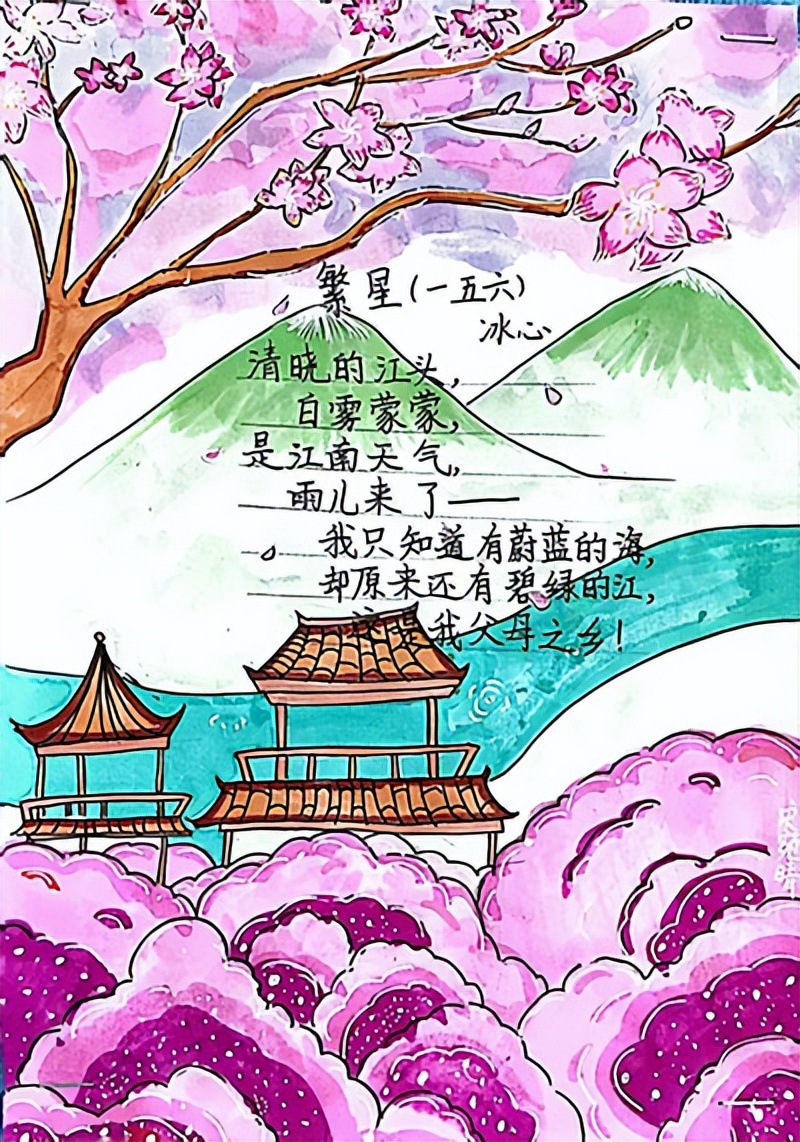 繁星(一五六)
冰心
清晓的江头,
白雾蒙蒙,
是江南天气,
雨儿来了——
我只知道有蔚蓝的海,
却原来还有碧绿的江,
这是我父母之乡!